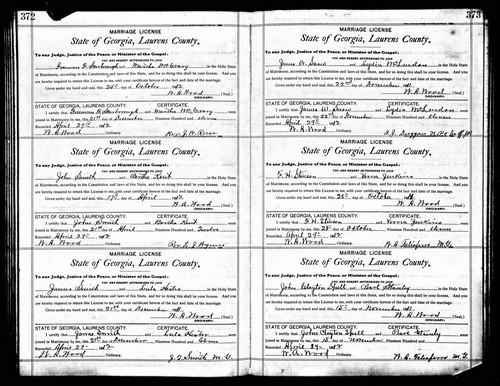 372
MARRIAGE LICENSE
State of Georgia, Laurens County.
To any Judge, Justice of the Peace, or Minister of the Gospel:
YOU ARE HEREBY AUTHORIZED TO JOIN
and
in the Holy State
of Matrimony, according to the Constitution and laws of this State, and for so doing this shall be your license. And you
are hereby required to return this License to me, with your certificate hereon of the fact and date of the marriage.
Given under my hand and seal, this 25th day of October
W. A. Wood (Seal.)
ORDINARY.
CERTIFICATE
STATE OF GEORGIA, LAURENS COUNTY:
I certify that and were
joined in Matrimony by me, this day of Nineteen Hundred and
Recorded April 29th
W. A. Wood Ordinary. Rev. J. W.
MARRIAGE LICENSE
State of Georgia, Laurens County.
To any Judge, Justice of the Peace, or Minister of the Gospel:
YOU ARE HEREBY AUTHORIZED TO JOIN
John Smith and Bertha Kent in the Holy State
of Matrimony, according to the Constitution and laws of this State, and for so doing this shall be your license. And you
are hereby required to return this License to me, with your certificate hereon of the fact and date of the marriage.
Given under my hand and seal, this day of April
W. A. Wood (Seal.)
ORDINARY.
CERTIFICATE
STATE OF GEORGIA, LAURENS COUNTY:
I certify that John Smith and Bertha Kent were
joined in Matrimony by me, this day of April Nineteen Hundred and Twelve
Recorded April
W. A. Wood Ordinary.
MARRIAGE LICENSE
State of Georgia, Laurens County.
To any Judge, Justice of the Peace, or Minister of the Gospel:
YOU ARE HEREBY AUTHORIZED TO JOIN
James Smith and Lula in the Holy State
of Matrimony, according to the Constitution and laws of this State, and for so doing this shall be your license. And you
are hereby required to return this License to me, with your certificate hereon of the fact and date of the marriage.
Given under my hand and seal, this 21st day of December
W. A. Wood (Seal.)
ORDINARY.
CERTIFICATE
STATE OF GEORGIA, LAURENS COUNTY:
I certify that James Smith and Lula were
joined in Matrimony by me, this 21st day of December Nineteen Hundred and Eleven
Recorded April 29
W. A. Wood Ordinary. J. T. Smith M. G.
373
MARRIAGE LICENSE
State of Georgia, Laurens County.
To any Judge, Justice of the Peace, or Minister of the Gospel:
YOU ARE HEREBY AUTHORIZED TO JOIN
James W. and Lydia in the Holy State
of Matrimony, according to the Constitution and laws of this State, and for so doing this shall be your license. And you
are hereby required to return this License to me, with your certificate hereon of the fact and date of the marriage.
Given under my hand and seal, this 22nd day of November
W. A. Wood (Seal.)
ORDINARY.
CERTIFICATE
STATE OF GEORGIA, LAURENS COUNTY:
I certify that James W. and Lydia were
joined in Matrimony by me, this 22nd day of November Nineteen Hundred and Eleven
Recorded April 29th
W. A. Wood Ordinary.
MARRIAGE LICENSE
State of Georgia, Laurens County.
To any Judge, Justice of the Peace, or Minister of the Gospel:
YOU ARE HEREBY AUTHORIZED TO JOIN
and Verna Jenkins in the Holy State
of Matrimony, according to the Constitution and laws of this State, and for so doing this shall be your license. And you
are hereby required to return this License to me, with your certificate hereon of the fact and date of the marriage.
Given under my hand and seal, this day of October
W. A. Wood (Seal.)
ORDINARY.
CERTIFICATE
STATE OF GEORGIA, LAURENS COUNTY:
I certify that and Verna Jenkins were
joined in Matrimony by me, this day of October Nineteen Hundred and Eleven
Recorded April 29th
W. A. Wood Ordinary.
MARRIAGE LICENSE
State of Georgia, Laurens County.
To any Judge, Justice of the Peace, or Minister of the Gospel:
YOU ARE HEREBY AUTHORIZED TO JOIN
John Clayton Spell and in the Holy State
of Matrimony, according to the Constitution and laws of this State, and for so doing this shall be your license. And you
are hereby required to return this License to me, with your certificate hereon of the fact and date of the marriage.
Given under my hand and seal, this 15th day of November
W. A. Wood (Seal.)
ORDINARY.
CERTIFICATE
STATE OF GEORGIA, LAURENS COUNTY:
I certify that John Clayton Spell and were
joined in Matrimony by me, this day of November Nineteen Hundred and Eleven
Recorded April 29th
W. A. Wood Ordinary.